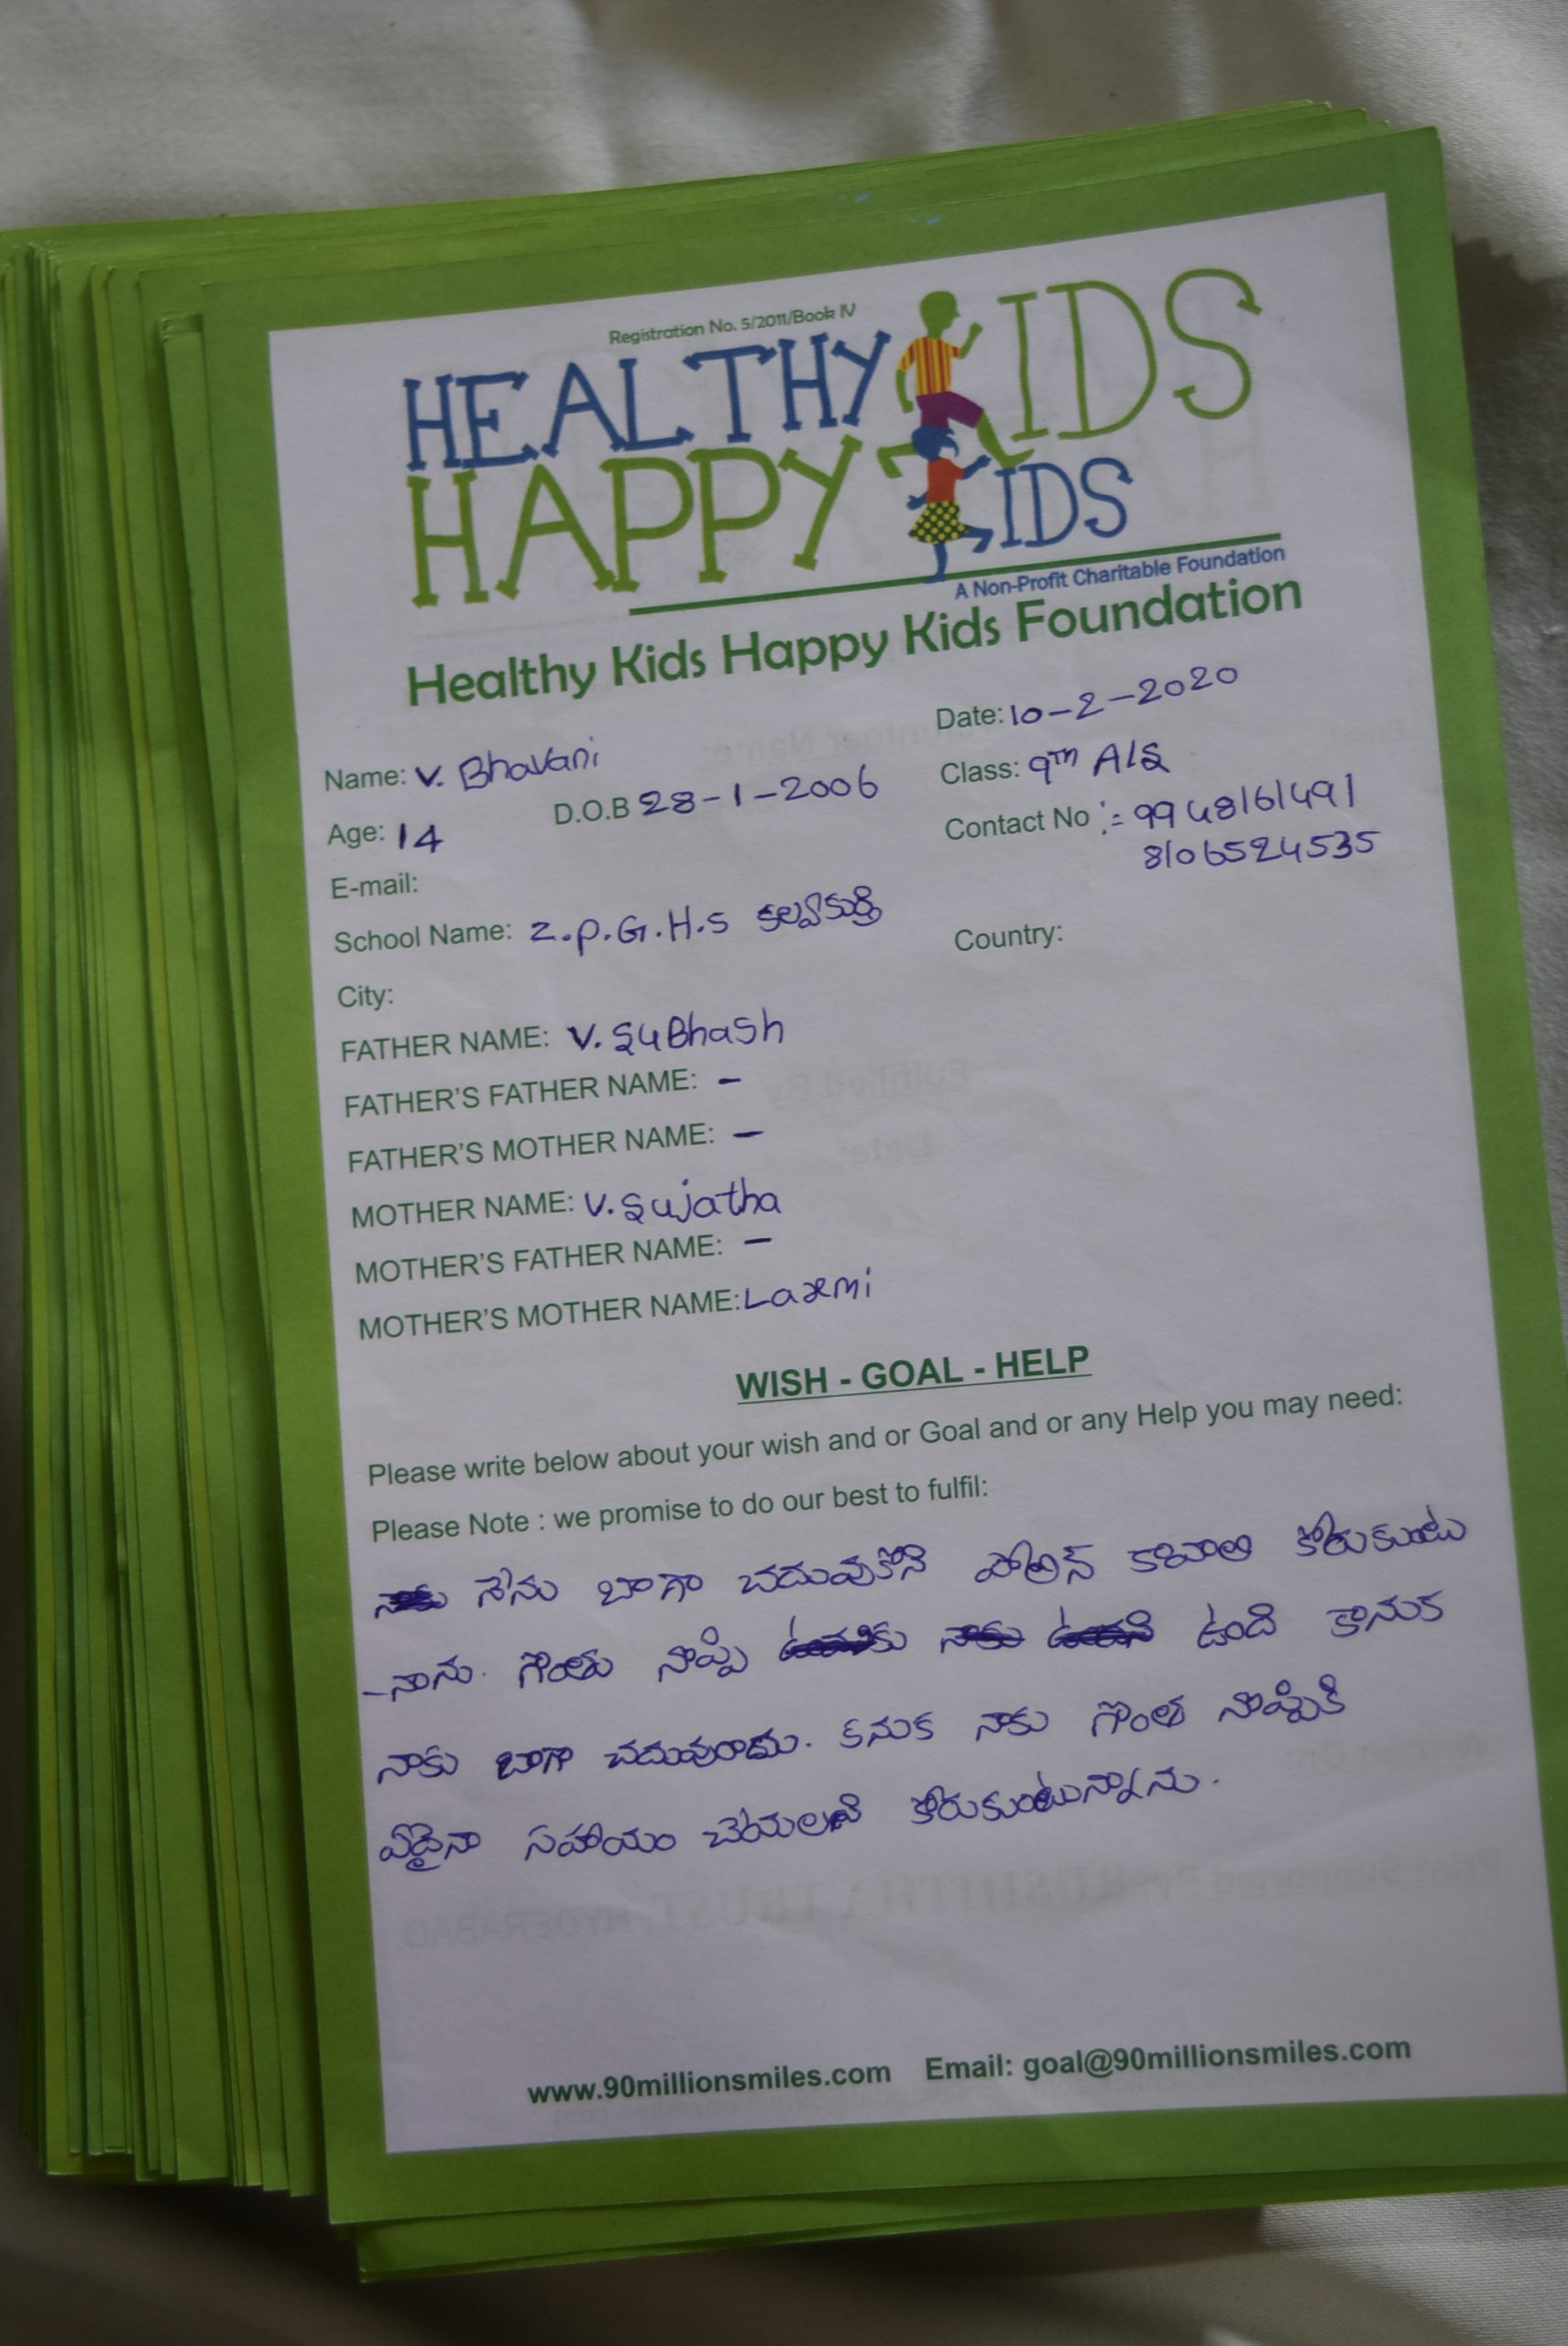 Registration No. 5/2011/Book IV
HEALTHY KIDS
HAPPY KIDS
A Non-Profit Charitable Foundation
Healthy Kids Happy Kids Foundation
Date: 10-2-2020
Name: V. Bhavani
Class: 9th A/S
Age: 14 D.O.B 28-1-2006
Contact No := 9948161491
8106524535
E-mail:
School Name: Z.P.G.H.S కల్వకుర్తి
Country:
City:
FATHER NAME: V. SuBhash
FATHER'S FATHER NAME: -
FATHER'S MOTHER NAME: -
MOTHER NAME: V. Sujatha
MOTHER'S FATHER NAME: -
MOTHER'S MOTHER NAME: Laxmi
WISH - GOAL - HELP
Please write below about your wish and or Goal and or any Help you may need:
Please Note : we promise to do our best to fulfil:
నేను బాగా చదువుకొని పోలిస్ కావాలి కోరుకుంటు
-నాను. గొంతు నొప్పి ఉంది కానుక
నాకు బాగా చదువురాదు. కనుక నాకు గొంత నొప్పికి
ఏదైనా సహాయం చేయలని కోరుకుంటున్నాను.
www.90millionsmiles.com Email: goal@90millionsmiles.com